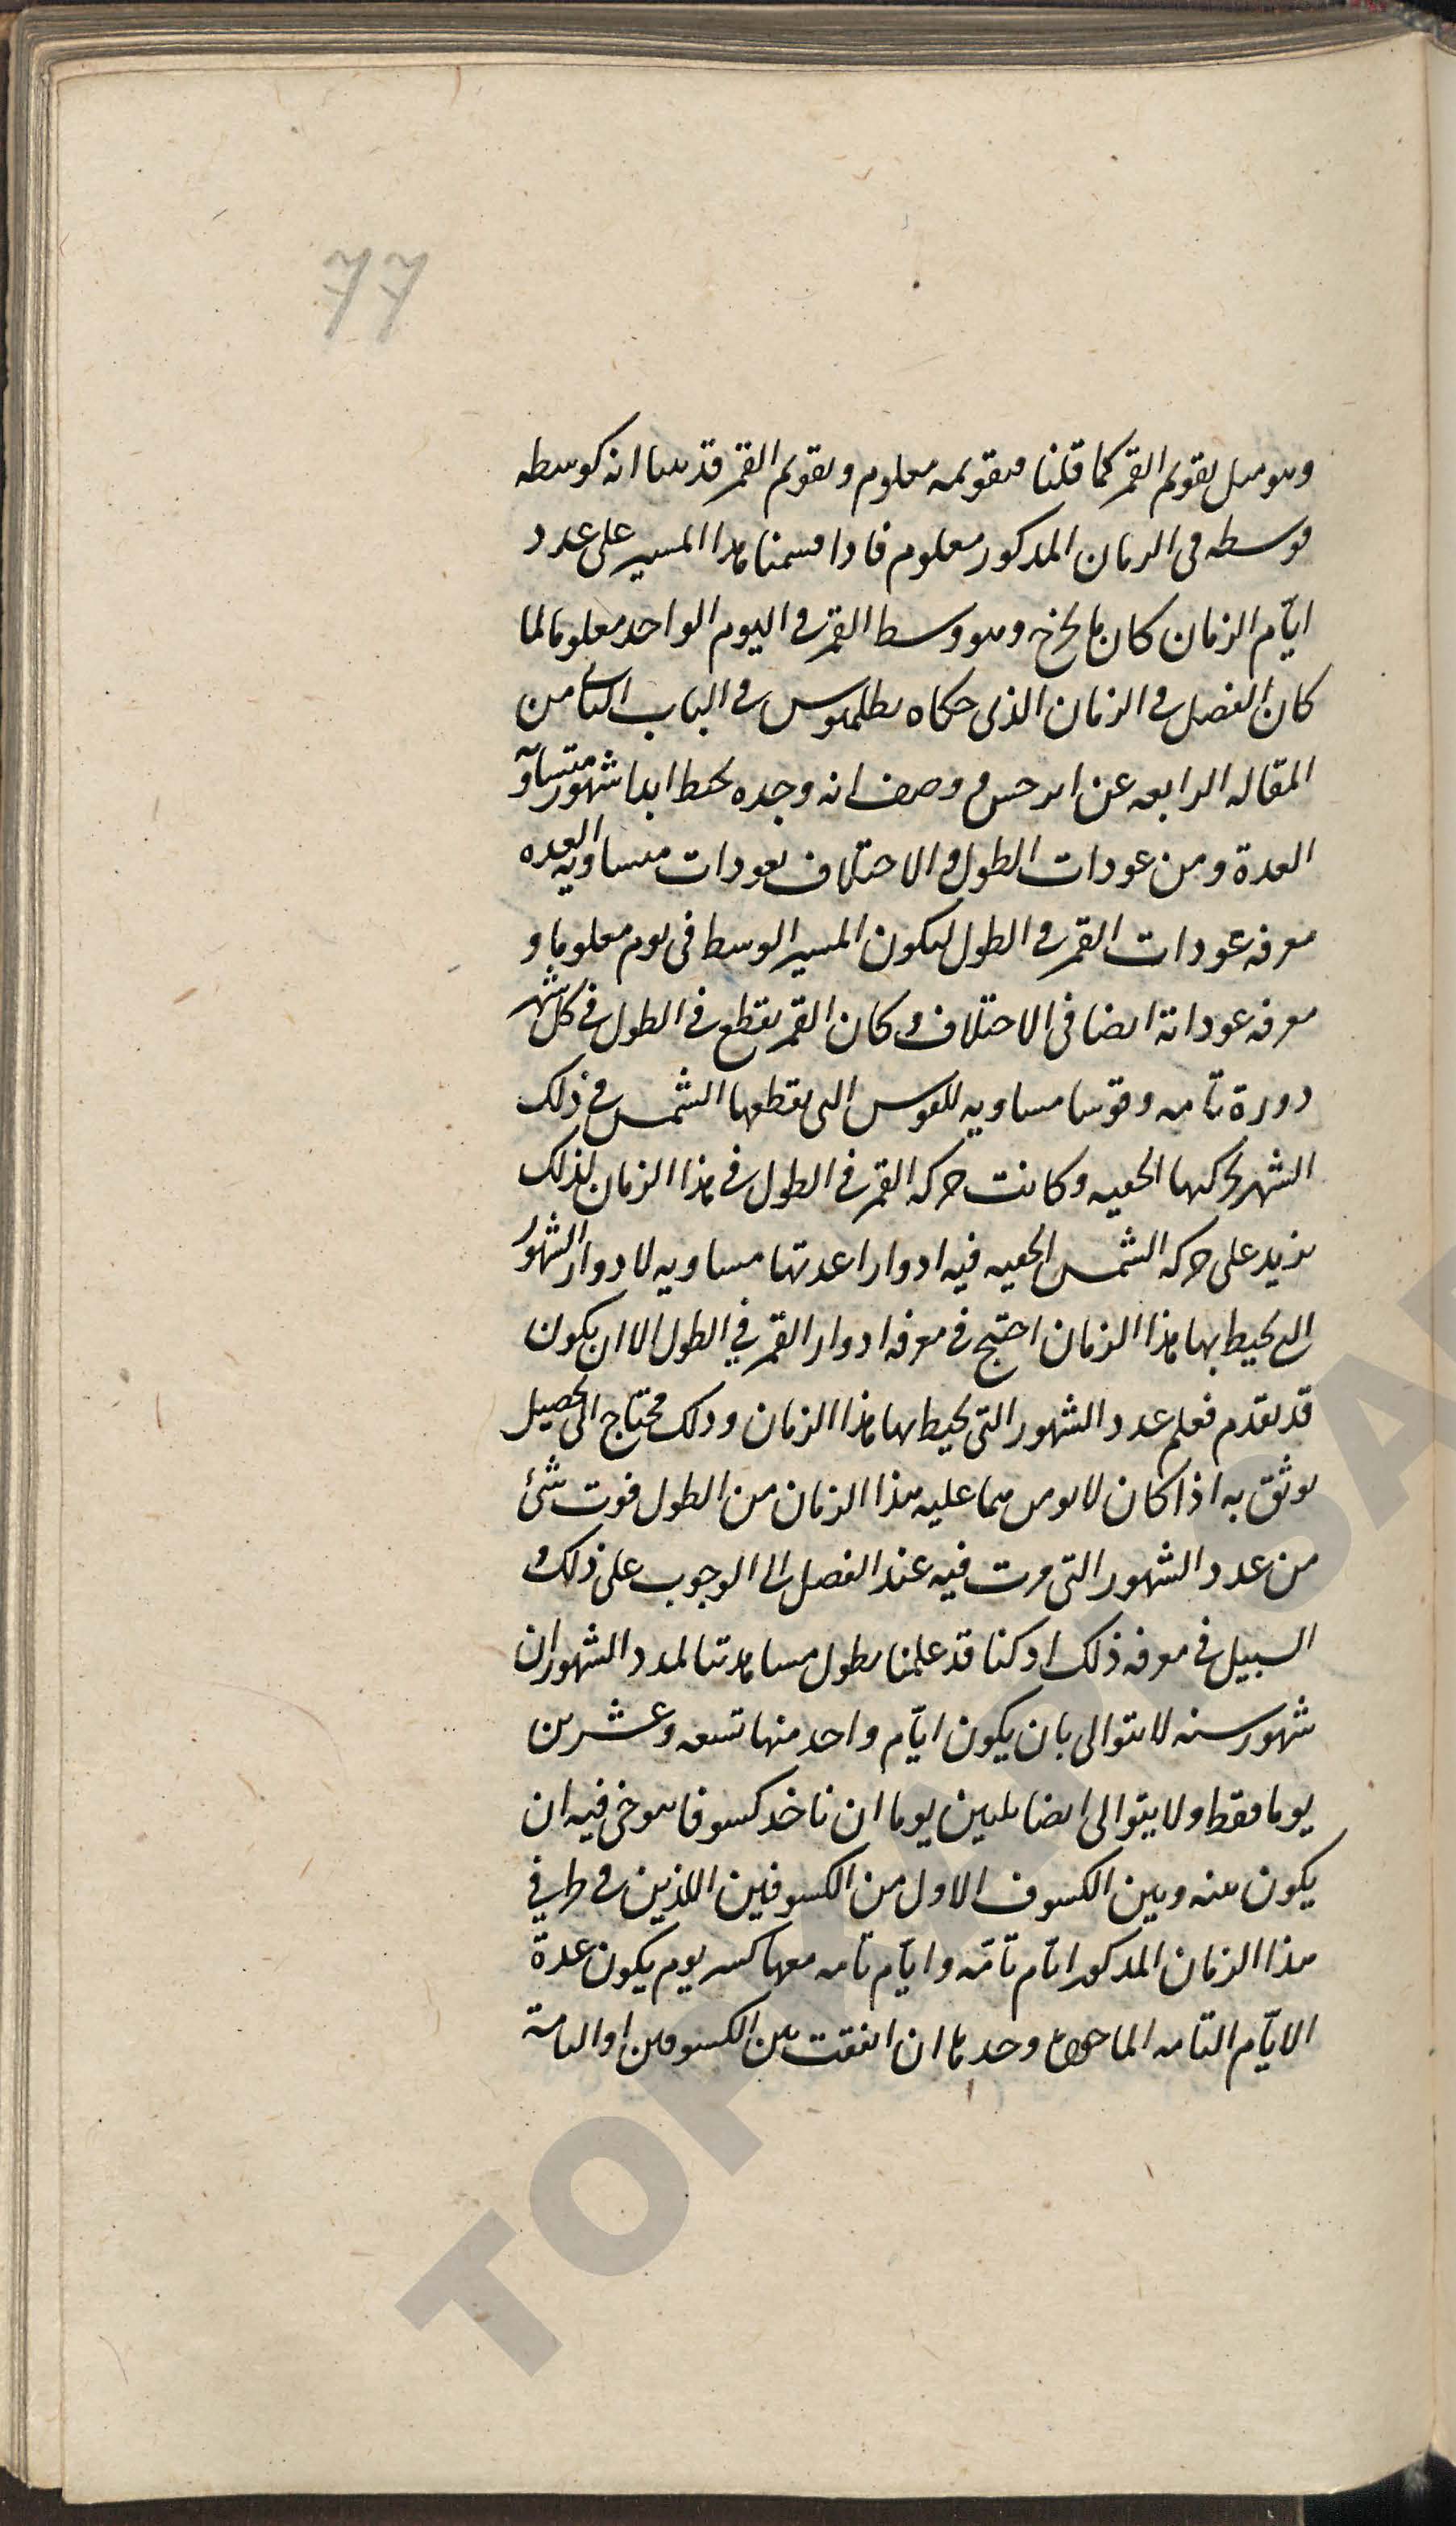 77
وهو مىل ىقوىم القمر كما قلنا فىقوىمه معلوم وىقوىم القمر قد ىىنا انه كوسطه
فوسطه فى الرمان المدكور معلوم فادا قسمنا هدا المسىر على عدد
ايّام الزمان كان ما يخرج وهو وسط القمر فى اليوم الواحد معلوما لما
كان الفصل فى الزمان الذى حكاه بطلميوس فى الباب الثانى من
المقاله الرابعه عن ابرخس وصف انه وجده يحيط ابدا بشهور متساوية
العدة ومن عودات الطول والاختلاف بعودات متساويه العده
معرفه عودات القمر فى الطول ليكون المسير الوسط فى يوم معلوما و
معرفه عوداته ايضا فى الاختلاف وكان القمر يقطع فى الطول فى كل شهر
دورة تامه وقوسا مساويه للقوس التى يقطعها الشمس فى ذلك
الشهر بحركتها الخفيه وكانت حركه القمر فى الطول فى هذا الزمان لذلك
يزيد على حركه الشمس الخفيه فيه ادوارا عدتها مساويه لادوار الشهور
التى يحيط بها هذا الزمان احتيج فى معرفه ادوار القمر فى الطول الا ان يكون
قد تقدم فعلم عدد الشهور التى يحيط بها هذا الزمان وذلك محتاج الى تحصيل
يوثق به اذا كان لا يومن مما عليه هذا الزمان من الطول فوت شئ
من عدد الشهور التى مرت فيه عند الفصل الوجوب على ذلك و
السبيل فى معرفه ذلك اد كنا قد علمنا بطول مشاهدتنا لمدد الشهور ان
شهور سنه لا تتوالى بان يكون ايّام واحد منها تسعه وعشرين
يوما فقط ولا يتوالى ايضا ثلثين يوما ان ناخد كسوفا يتوخى فيه ان
يكون بينه وبين الكسوف الاول من الكسوفين اللذين فى طرفي
هذا الزمان المدكور ايّام تامّه وايّام تامه معها كسر يوم يكون عدة
الايّام التامه وحدها ان اتفقت بين الكسوفين او التامة